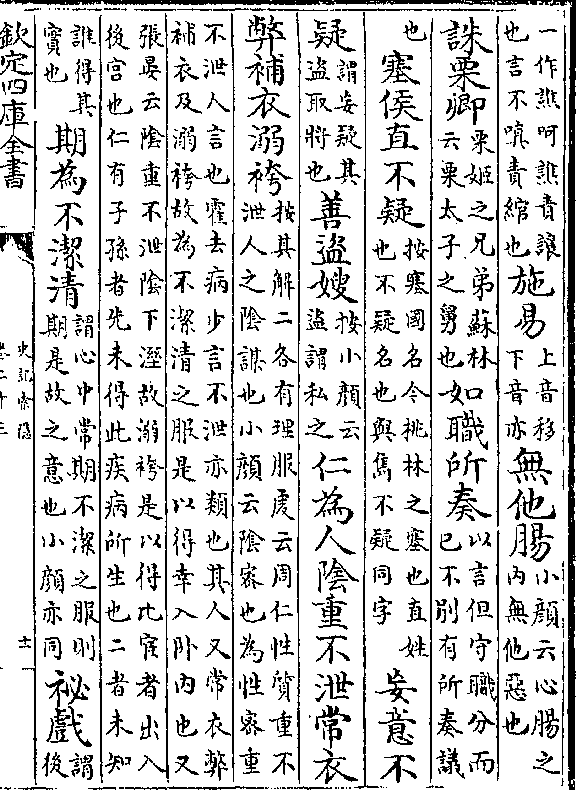 一作譙呵譙音譲
也言不嗔責綰也
施易
上音移
下音亦
無他腸
小顔云心腸之
内無他惡也
誅栗卿
栗姬之兄弟蘇林
云栗太子之舅也
如職所奏
以言但守職分而
已不别有所奏議
也
塞侯直不疑
按塞國名今桃林之塞也直姓
也不疑名也與雋不疑同字
妄意不
疑
謂妄疑其
盗取將也
善盗嫂
按小顔云
盗謂私之
仁為人陰重不泄常衣
弊補衣溺袴
按其解二各有理服虔云周仁性質重不
泄人之陰謀也小顔云陰宻也為性宻重
不泄人言也霍去病少言不泄亦類也其人又常衣弊
補衣及溺袴故為不潔清之服是以得幸入卧内也又
張晏云陰重不泄陰下溼故溺袴是以得比宦者出入
後宫也仁有子孫者先未得此疾病所生也二者未知
誰得其
實也
期為不潔清
謂心中常期不潔之服則
期是故之意也小顔亦同
祕戲
謂
後
欽定四庫全書
史記索隱